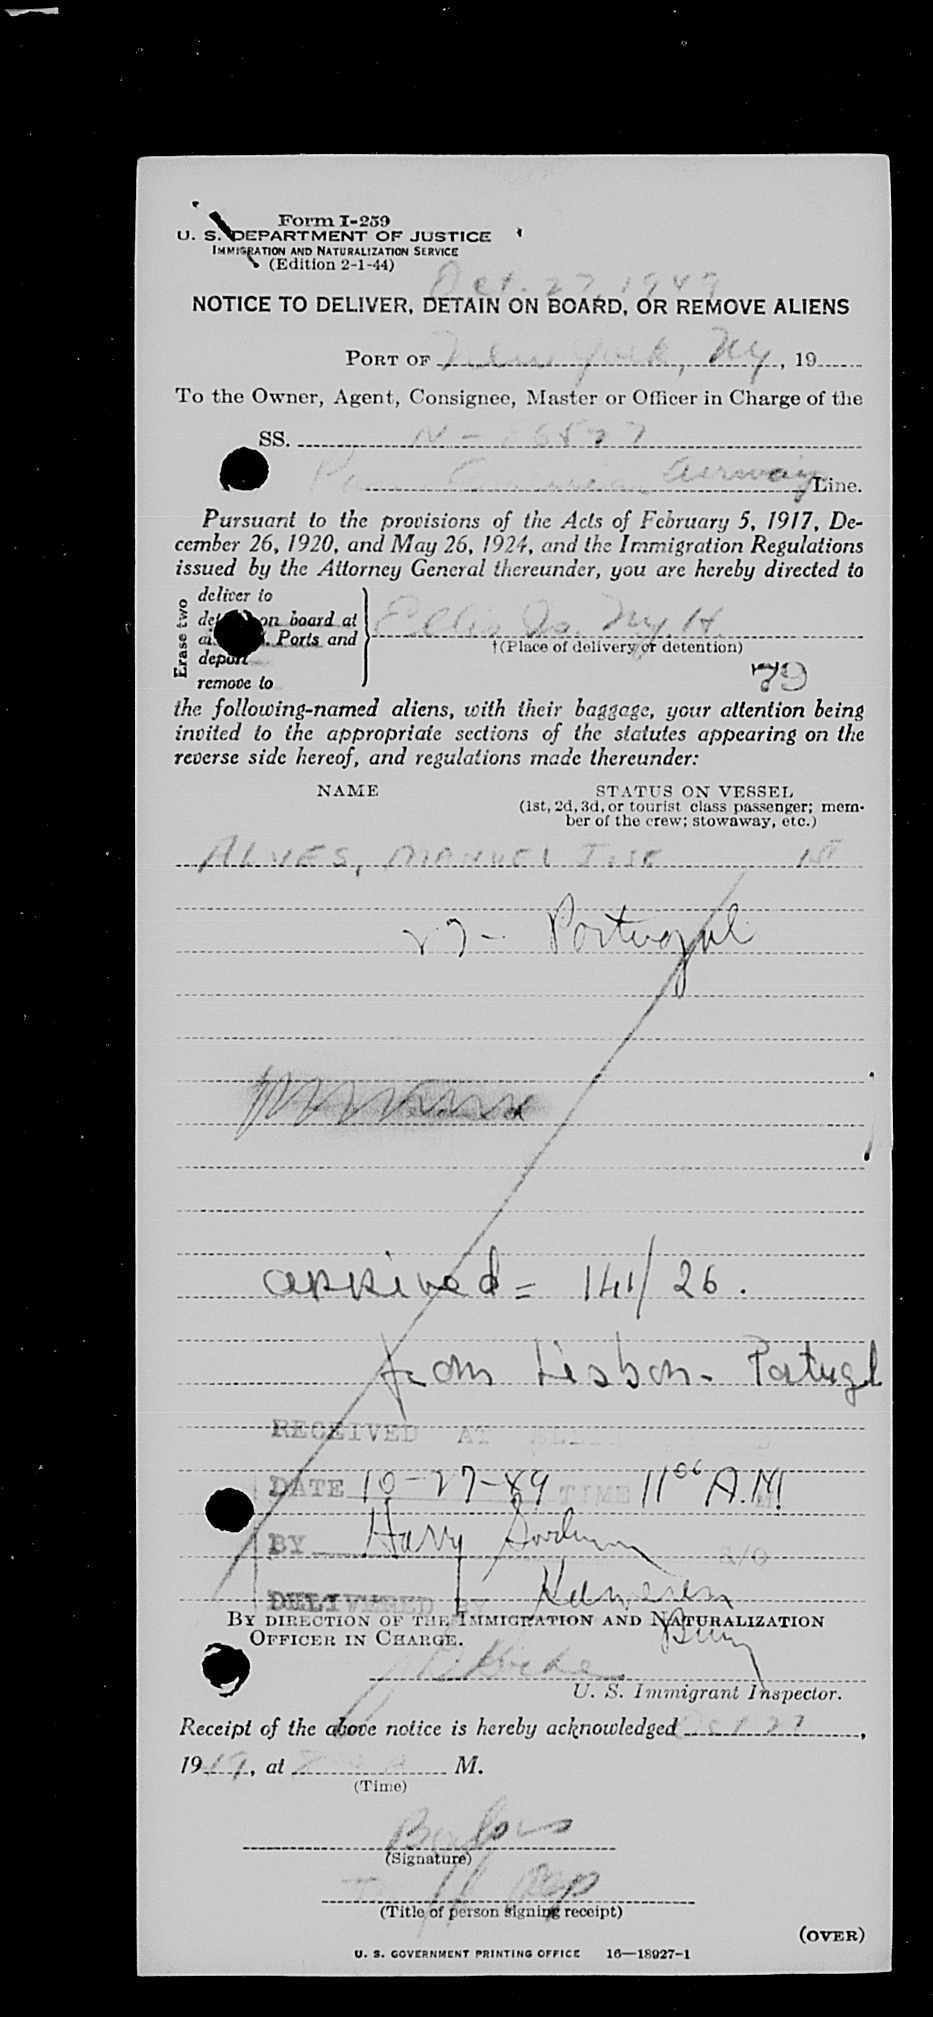 Form I-259
U. S. DEPARTMENT OF JUSTICE
IMMIGRATION AND NATURALIZATION SERVICE
(Edition 2-1-44)
Oct. 27, 1949
NOTICE TO DELIVER, DETAIN ON BOARD, OR REMOVE ALIENS
PORT OF New York, NY, 19
To the Owner, Agent, Consignee, Master or Officer in Charge of the
SS. N-
Pan American Airway Line.
Pursuant to the provisions of the Acts of February 5, 1917, De-
cember 26, 1920, and May 26, 1924, and the Immigration Regulations
issued by the Attorney General thereunder, you are hereby directed to
Erase two
deliver to
on board at
Ports and
deport
remove to
Ellis Is. N.Y. H.
†(Place of delivery or detention)
79
the following-named aliens, with their baggage, your attention being
invited to the appropriate sections of the statutes appearing on the
reverse side hereof, and regulations made thereunder:
NAME STATUS ON VESSEL
(1st, 2d, 3d, or tourist class passenger; mem-
ber of the crew; stowaway, etc.)
ALVES, MANUEL JOSE 1st
27 - Portugal
arrived = 141/26.
from Lisbon - Portugl
RECEIVED AT ELLIS
DATE 10-27-49 TIME 11 06 A.M.
BY Harry
DELIVERED BY
BY DIRECTION OF THE IMMIGRATION AND NATURALIZATION
OFFICER IN CHARGE.
U. S. Immigrant Inspector.
Receipt of the above notice is hereby acknowledged Oct 27,
1949, at M.
(Time)
(Signature)
Rep
(Title of person signing receipt)
(OVER)
U. S. GOVERNMENT PRINTING OFFICE 16—18927-1